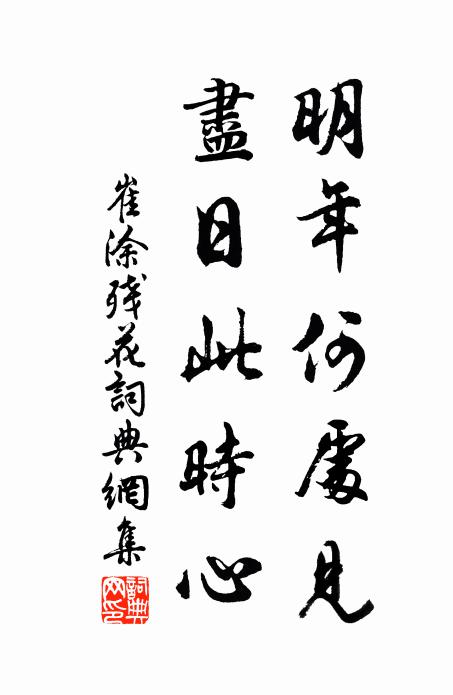 明年何處見
盡日此時心
崔涂残花詞典網集
詞典網印